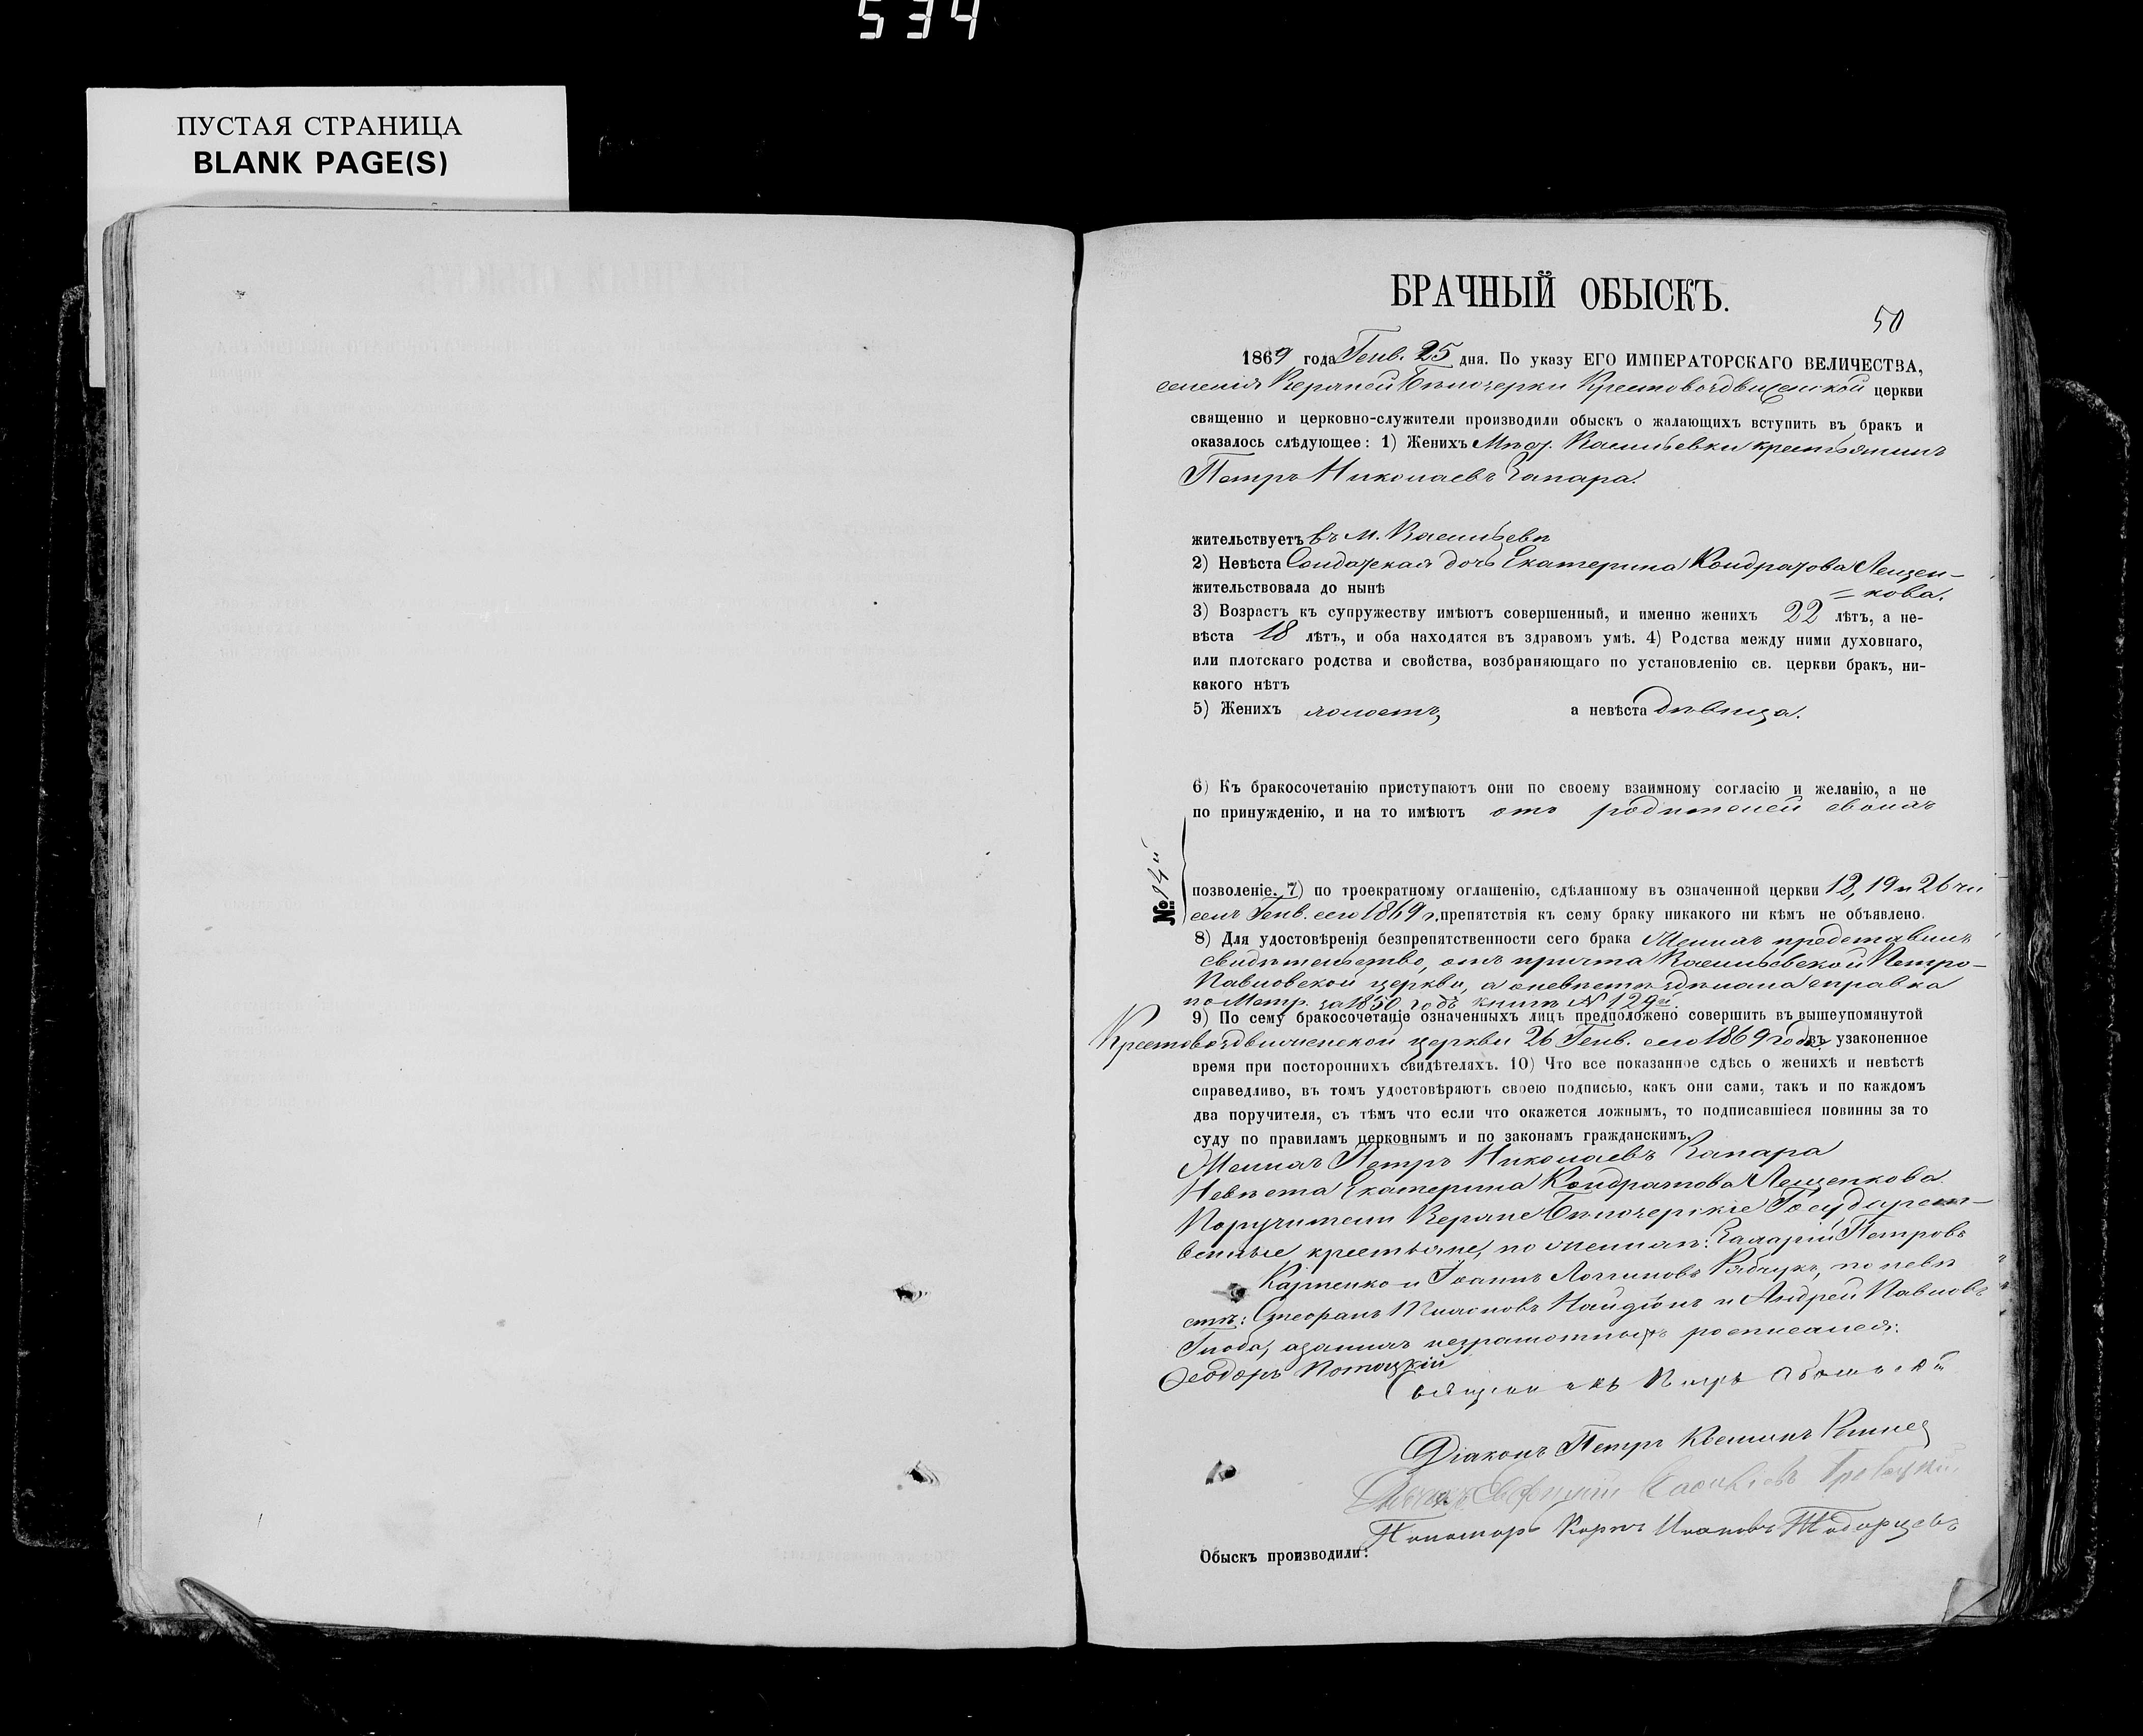 534
ПУСТАЯ СТРАНИЦА
BLANK PAGE(S)
БРАЧНЫЙ ОБЫСКЪ.
50
1869 года Генв. 25 дня. По указу ЕГО ИМПЕРАТОРСКАГО ВЕЛИЧЕСТВА,
селенія Верхней Бѣлозерки Крестовоздвиженской церкви
священно и церковно-служители производили обыскъ о жалающихъ вступить въ бракъ и
оказалось слѣдующее: 1) Женихъ Мѣст. Васильевки крестьянинъ
Петръ Николаевъ Запара.
жительствуетъ въ М. Васильевѣ
2) Невѣста Солдатская дочь Екатерина Кондратова Лещен-
жительствовала до нынѣ = кова.
3) Возрастъ къ супружеству имѣютъ совершенный, и именно женихъ 22 лѣтъ, а не-
вѣста 18 лѣтъ, и оба находятся въ здравомъ умѣ. 4) Родства между ними духовнаго,
или плотскаго родства и свойства, возбраняющаго по установленію св. церкви бракъ, ни-
какого нѣтъ
5) Женихъ холостъ, а невѣста дѣвица.
6) Къ бракосочетанію приступаютъ они по своему взаимному согласію и желанію, а не
по принужденію, и на то имѣютъ отъ родителей своихъ
№ 14й
позволеніе. 7) по троекратному оглашенію, сдѣланному въ означенной церкви 12, 19 и 26 чи
селъ Генв. сего 1869 г. препятствія къ сему браку никакого ни кѣмъ не объявлено.
8) Для удостовѣренія безпрепятственности сего брака Женихъ представилъ
свидѣтельство, отъ причта Васильевской Петро-
Павловской церкви, а о невѣстѣ здѣлана справка
по Метр. за 1850 годъ книгѣ N 129й.
9) По сему бракосочетаніе означенныхъ лицъ предположено совершить въ вышеупомянутой
Крестовоздвиженской церкви 26 Генв. сего 1869 года въ узаконенное
время при постороннихъ свидѣтеляхъ. 10) Что все показанное сдѣсь о женихѣ и невѣстѣ
справедливо, въ томъ удостовѣряютъ своею подписью, какъ они сами, такъ и по каждомъ
два поручителя, съ тѣмъ что если что окажется ложнымъ, то подписавшіеся повинны за то
суду по правиламъ церковнымъ и по законамъ гражданскимъ.
Женихъ Петръ Николаевъ Запара
Невѣста Екатерина Кондратова Лещенкова
Поручители Верхне Бѣлозерскіе Государст-
венные крестьяне, по женихѣ: Захарій Петровъ
Карпенко и Іоаннъ Логиновъ Рябчукъ, по невѣ
стѣ: Стефанъ Найдіонъ и Андрей Павловъ
Глоба, а за нихъ неграмотныхъ росписался:
Феодоръ Потоцкій
Священникъ Петръ
Діаконъ Петръ
Пономарь Иоановъ
Обыскъ производили: